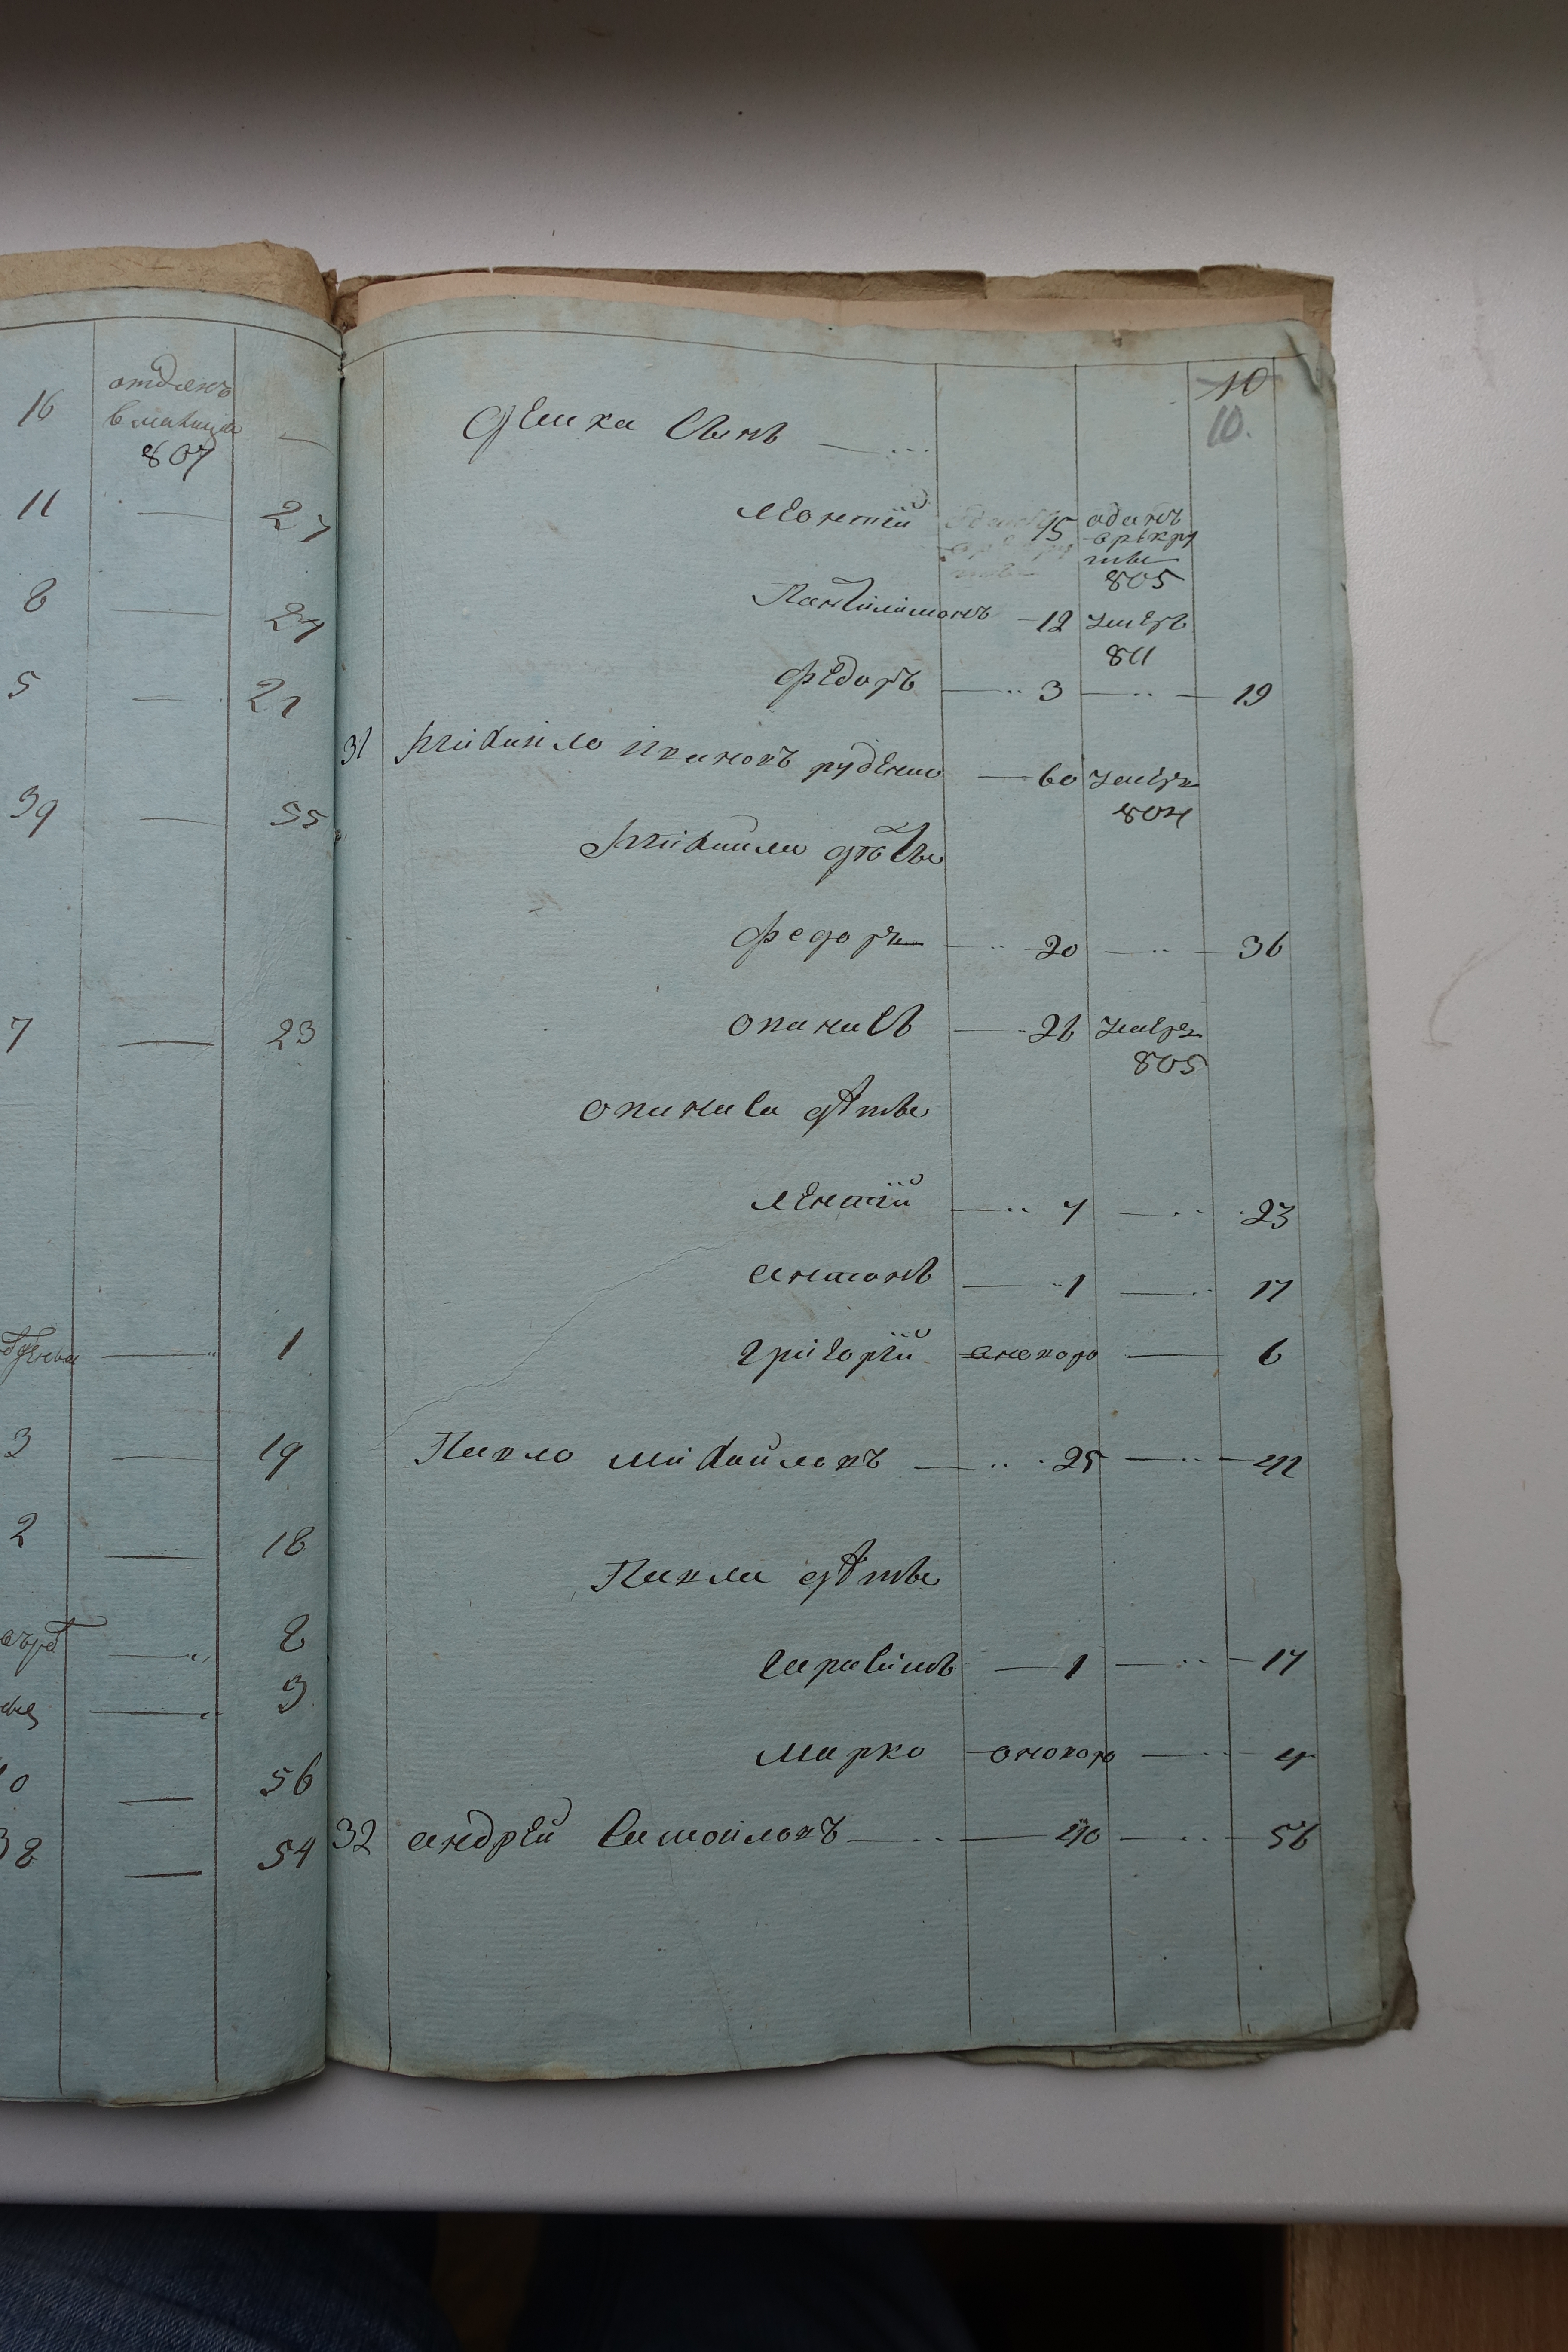 16 отданъ
807
11 27
8 24
5 21
39 55
7 23
1
3 19
2 18
2
3
56
38 54
10
10.
демка сынъ
леонтій 15 одатъ
805
Пантилимонъ 12 умеръ
811
федоръ 3 19
31 михаило ивановъ руденко 60 умеръ
804
михаила дѣти
федоръ 20 36
опанасъ 26 умеръ
805
опанаса дѣти
лентій 7 23
антонъ 1 17
григорій 6
Павло михайловъ 25 41
Павла дѣти
герасимъ 1 17
марко 4
32 андрей самойловъ 40 56